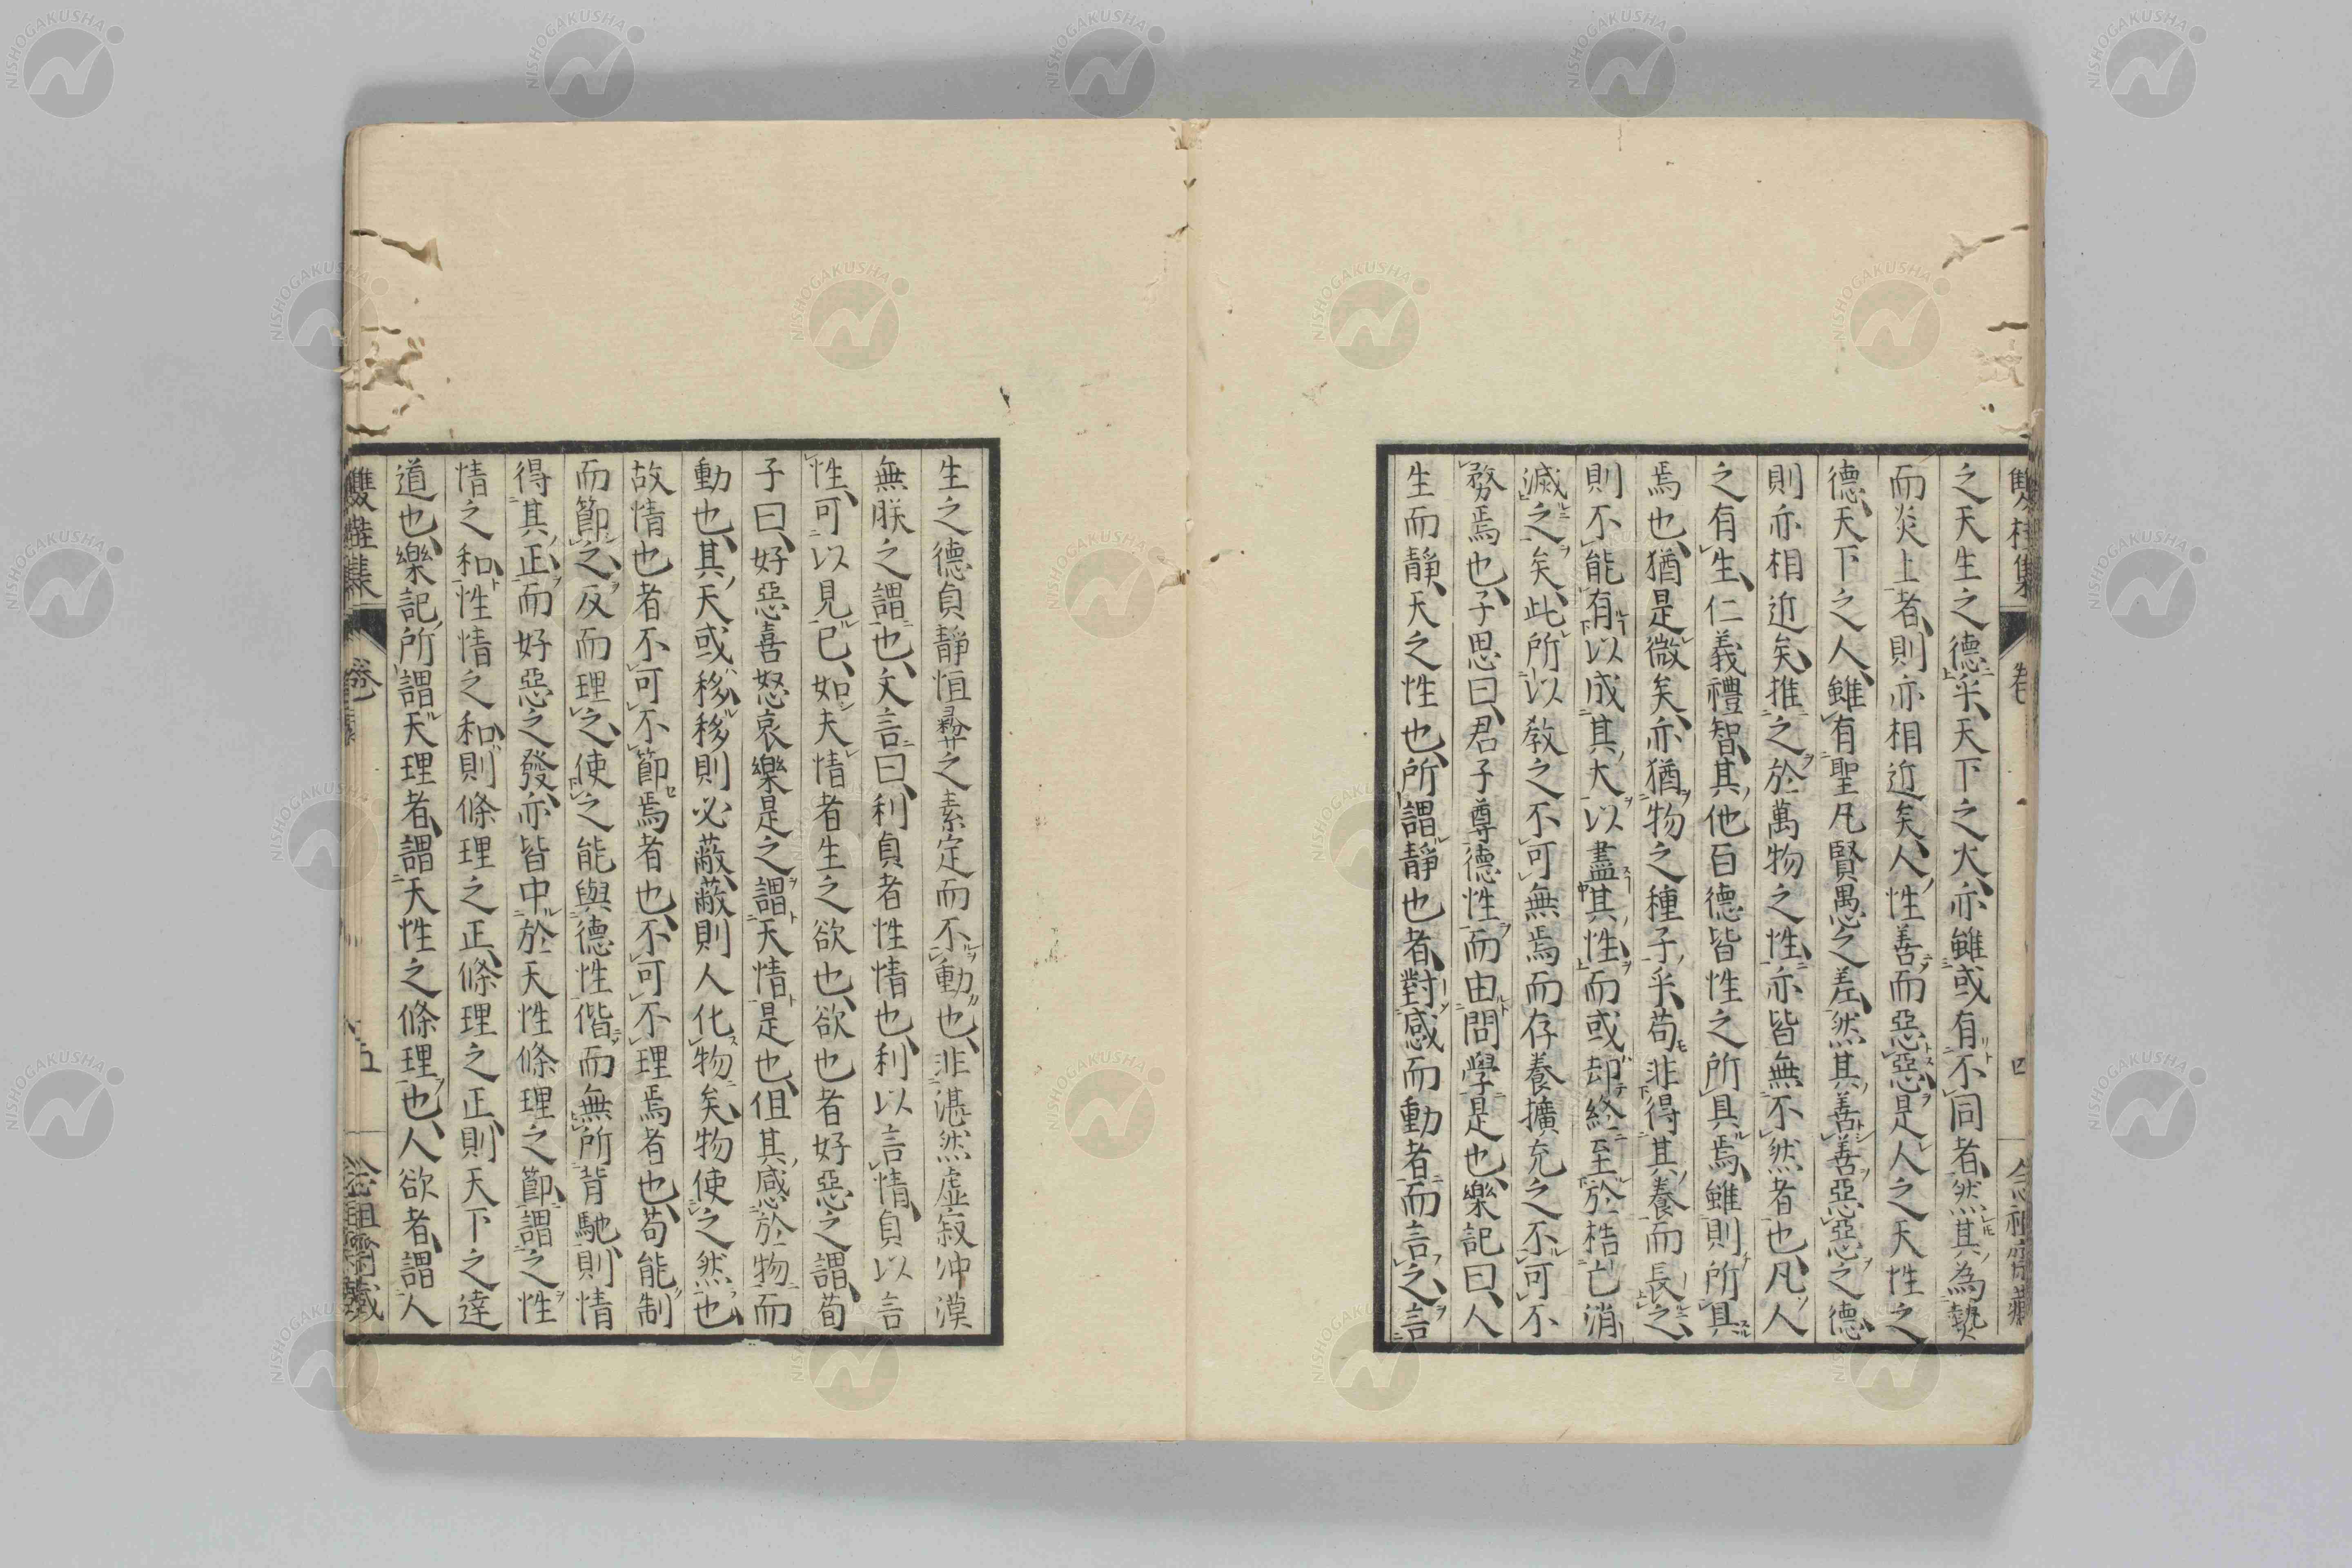 之天生之德乎、天下之大、亦雖或有不同者、然其為
而炎上者、則亦相近矣、人性善、而惡惡、是人之天性之
德、天下之人、雖有聖凡賢愚之差、然其善善惡惡之德、
則亦相近矣、推之於萬物之性、亦皆無不然者也、凡人
之有生、仁義禮智、其他百德皆性之所具焉、雖則所具
焉也、猶是微矣、亦猶物之種子乎、苟非得其養而長之、
則不能有以成其大、以盡其性、而或却終至於梏亡消
滅之矣、此所以教之不可無焉、而存養擴充之不可不
務焉也、子思曰、君子尊德性而由問學、是也、樂記曰、人
生而靜、天之性也、所謂靜也者、對感而動者而言之、言
生之德貞靜恒彛之素定而不動也、非湛然虛寂沖漠
無朕之謂也、文言曰、利貞者性情也、利以言情、貞以言
性、可以見已、如夫情者生之欲也、欲也者好惡之謂、荀
子曰、好惡喜怒哀樂是之謂天情是也、但其感於物而
動也、其天或移、移則必蔽、蔽則人化物矣、物使之然也、
故情也者不可不節焉者也、不可不理焉者也、苟能制
而節之、反而理之、使之能與德性偕而無所背馳、則情
得其正、而好惡之發、亦皆中於天性條理之節、謂之性
情之和、性情之和、則條理之正、條理之正、則天下之達
道也、樂記所謂天理者、謂天性之條理也、人欲者、謂人
雙桂集
卷
五
四
NISHOGAKUSHA